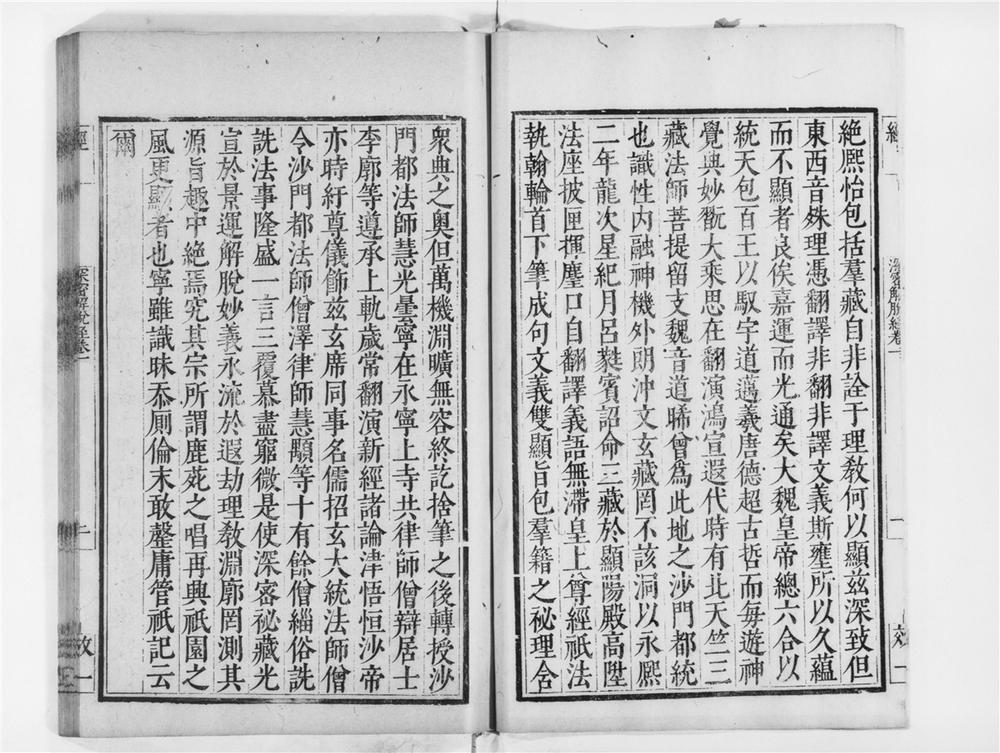 絶熈怡包括羣藏自非詮于理教何以顯茲深致但
東西音殊理憑翻譯非翻非譯文義斯壅所以久蘊
而不顯者良俟嘉運而光通矣大魏皇帝總六合以
統天包百王以馭宇道邁羲唐德超古哲而每遊神
覺典妙翫大乘思在翻演鴻宣遐代時有北天竺三
藏法師菩提留支魏音道晞曾爲此地之沙門都統
也識性內融神機外朗沖文玄藏罔不該洞以永熈
二年龍次星紀月呂蕤賓詔命三藏於顯陽殿高陞
法座披匣揮麈口自翻譯義語無滯皇上尊經祇法
執翰輪首下筆成句文義雙顯旨包羣籍之祕理含
深密解脫經卷一
一
效一
衆典之奧但萬機淵曠無容終訖捨筆之後轉授沙
門都法師慧光曇寧在永寧上寺共律師僧辯居士
李廓等遵承上軌歲常翻演新經諸論津悟恒沙帝
亦時紆尊儀飾玆玄席同事名儒招玄大統法師僧
令沙門都法師僧澤律師慧顒等十有餘僧緇俗詵
詵法事隆盛一言三覆慕盡窮微是使深密祕藏光
宣於景運解脫妙義永流於遐劫理教淵廓罔測其
源旨趣中絕焉究其宗所謂鹿苑之唱再興祇園之
風更顯者也寧雖識昧忝厠倫末敢罄庸管祇記云
爾
經
深密解脫經卷一
二
效一